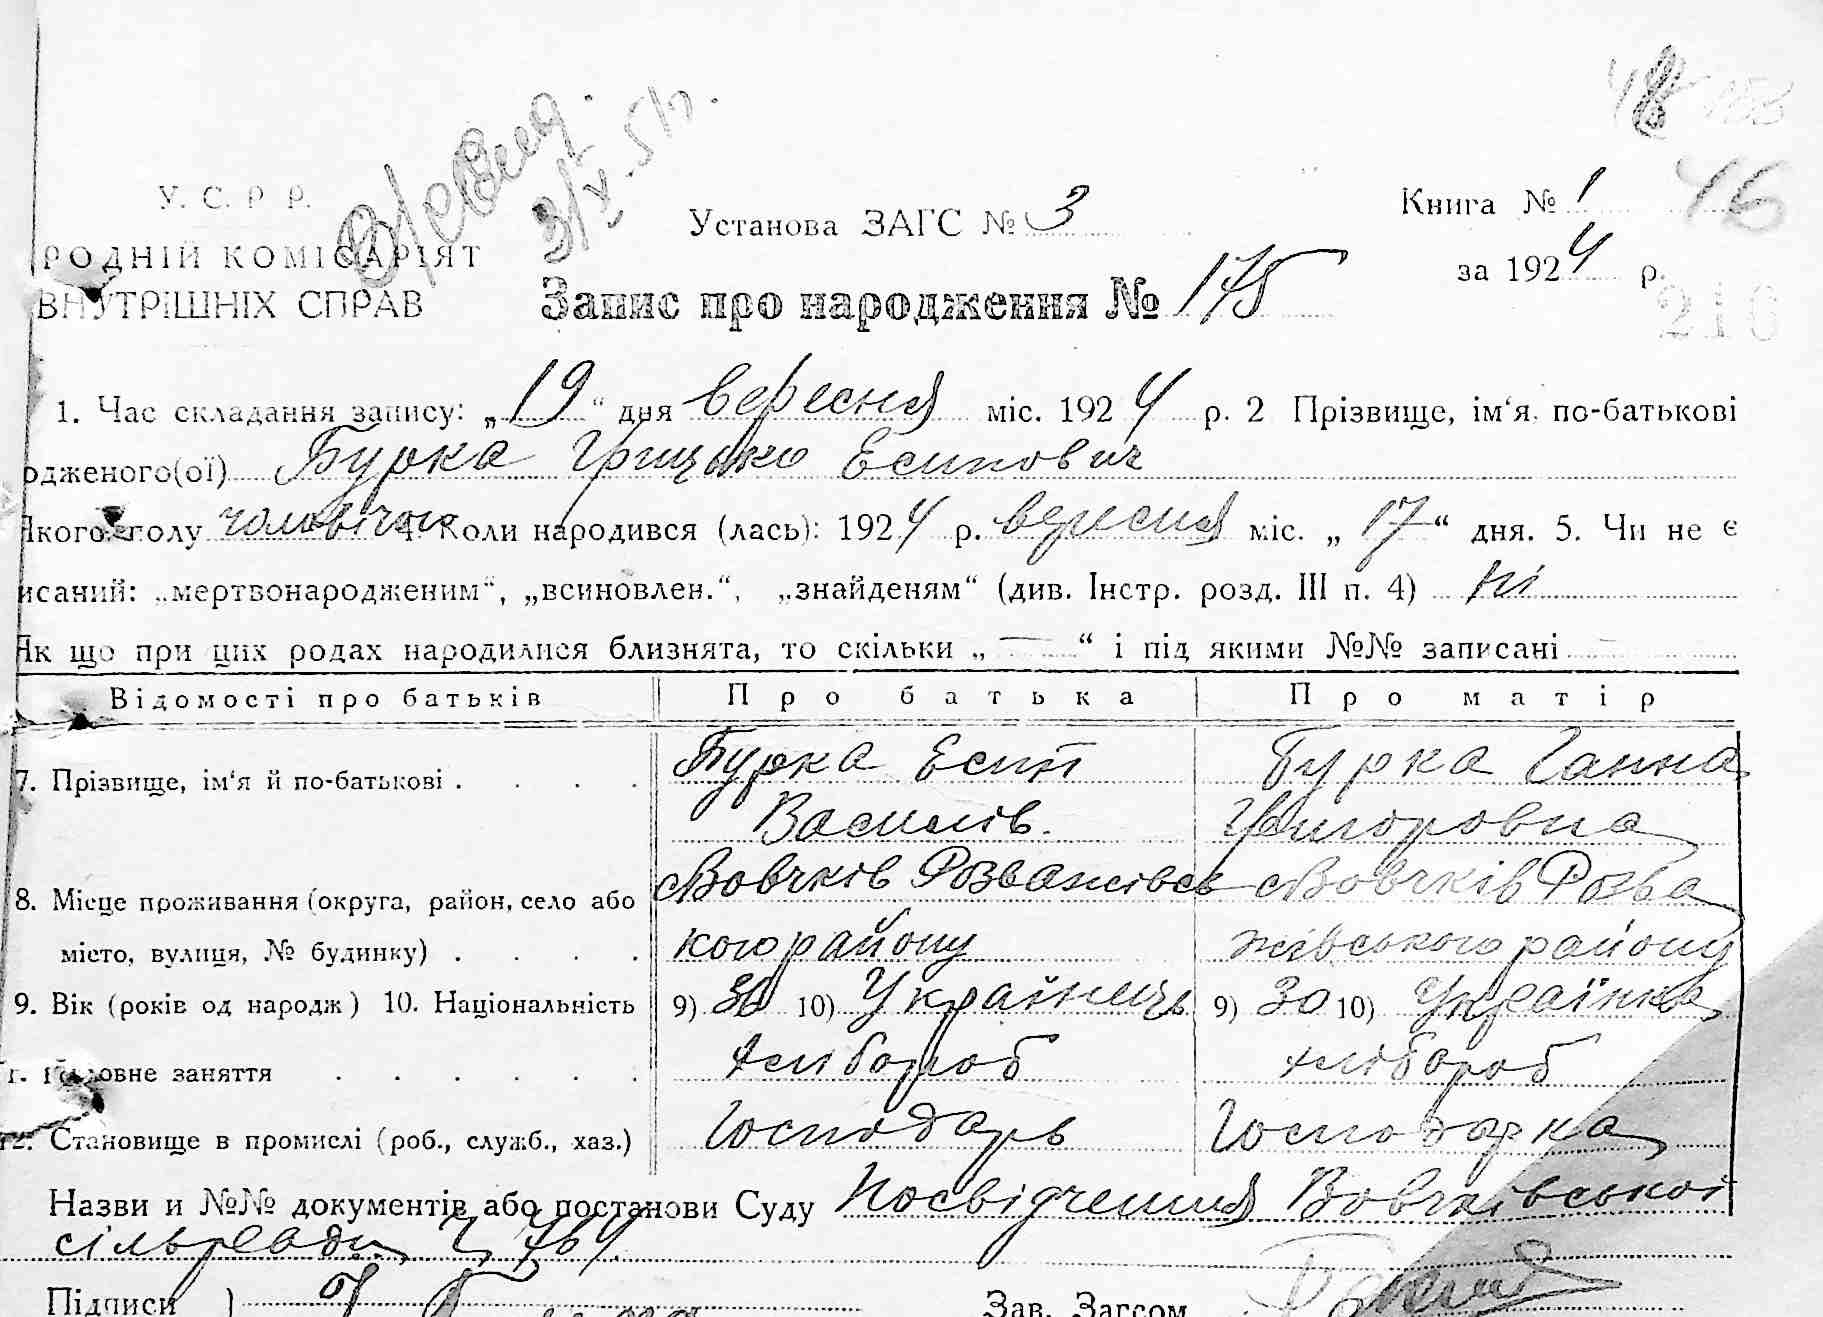 У. С. Р. Р.
РОДНІЙ КОМІСАРІЯТ
ВНУТРІШНІХ СПРАВ
Установа ЗАГС № 3
Книга № 1
46
за 1924 р.
216
Запис про народження № 175
1. Час складання запису: „19“ дня вересня міс. 1924 р. 2 Прізвище, ім‘я, по-батькові
одженого(ої) Бурка Грицько Есипович
Якого полу чоловічого 4. Коли народився (лась): 1924 р. вересня міс. „17“ дня. 5. Чи не є
исаний: „мертвонародженим“, „всиновлен.“, „знайденям“ (див. Інстр. розд. III п. 4) ні
Як що при цих родах народилися близнята, то скільки „—“ і під якими №№ записані —
Відомості про батьків Про батька Про матір
7. Прізвище, ім‘я й по-батькові . . . . Бурка Есип Бурка Ганна
Василів. Григоровна
8. Місце проживання (округа, район, село або Вовчків Розважівсь Вовчків Розва
місто, вулиця, № будинку) . . . . кого району жівського району
9. Вік (років од народж) 10. Національність 9) 30 10) Українець 9) 30 10) Українка
Головне заняття . . . . . . хлібороб хлібороб
12. Становище в промислі (роб., служб., хаз.) Господарь Господарка
Назви и №№ документів або постанови Суду Посвідчення Вовчківської
сільради
Підписи ) Зав. Загсом